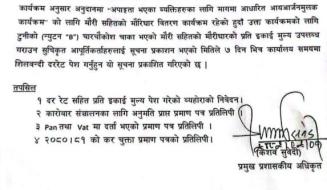 कार्यक्रम अनुसार अनुदानमा "अपाङ्गता भएका व्यक्तिहरुका लागि मागमा आधारित आयआर्जनमुलक
कार्यक्रम" को लागि मौरी सहितको मौरीघार वितरण कार्यक्रम रहेको हुदाँ उक्त कार्यक्रमको लागि
टुनीको (न्युटन "B") घारचौकोश चाका भएको मौरी सहितको मौरीघारको प्रति इकाई मुल्य उपलब्ध
गराउन सुचिकृत आपूर्तिकर्ताहरुलाई सूचना प्रकाशन भएको मितिले ७ दिन भित्र कार्यालय समयमा
शिलबन्दी दररेट पेश गर्नुहुन यो सूचना प्रकाशित गरिएको छ ।
तपसिल
१ दर रेट सहित प्रति इकाई मुल्य पेश गरेको व्यहोराको निवेदन।
२ कारोबार संचालनका लागि अनुमति प्राप्त प्रमाण पत्र प्रतिलिपी ।
३ Pan तथा Vat मा दर्ता भएको प्रमाण पत्र प्रतिलिपी ।
४ २०८०।८१ को कर चुक्ता प्रमाण पत्रको प्रतिलिपी।
(केशव सुवेदी)
प्रमुख प्रशासकीय अधिकृत